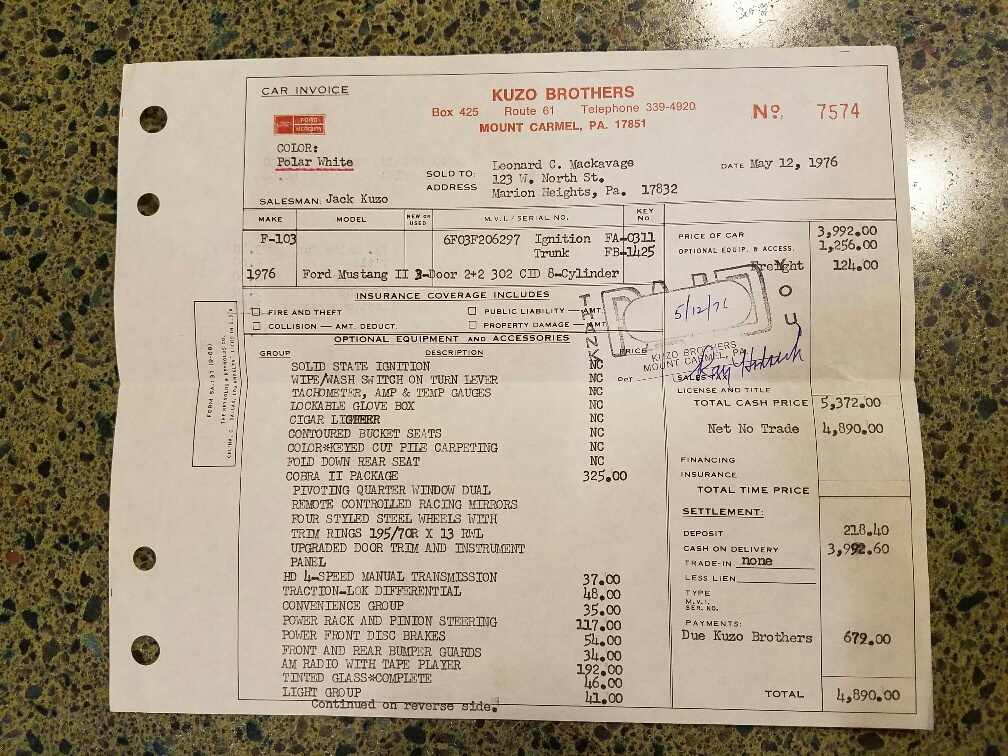 CAR INVOICE
KUZO BROTHERS
Box 425 Route 61 Telephone 339-4920
MOUNT CARMEL, PA. 17851
No. 7574
FORD
MERCURY
COLOR:
Polar White
SOLD TO: Leonard C. Mackavage
ADDRESS 123 W. North St.
Marion Heights, Pa. 17832
DATE May 12, 1976
SALESMAN: Jack Kuzo
MAKE MODEL NEW OR USED M.V.I. / SERIAL NO. KEY NO.
F-103 6F03F206297 Ignition FA-0311
Trunk FB-1425
1976 Ford Mustang II 3-Door 2+2 302 CID 8-Cylinder
PRICE OF CAR 3,992.00
OPTIONAL EQUIP. & ACCESS. 1,256.00
Freight 124.00
INSURANCE COVERAGE INCLUDES
FIRE AND THEFT PUBLIC LIABILITY — AMT.
COLLISION — AMT. DEDUCT. PROPERTY DAMAGE — AMT.
THANK YOU
PAID
5/12/76
KUZO BROTHERS
MOUNT CARMEL, PA.
Per
OPTIONAL EQUIPMENT AND ACCESSORIES
GROUP DESCRIPTION PRICE
SOLID STATE IGNITION NC
WIPE/WASH SWITCH ON TURN LEVER NC
TACHOMETER, AMP & TEMP GAUGES NC
LOCKABLE GLOVE BOX NC
CIGAR LIGHTER NC
CONTOURED BUCKET SEATS NC
COLOR*KEYED CUT PILE CARPETING NC
FOLD DOWN REAR SEAT NC
COBRA II PACKAGE 325.00
PIVOTING QUARTER WINDOW DUAL
REMOTE CONTROLLED RACING MIRRORS
FOUR STYLED STEEL WHEELS WITH
TRIM RINGS 195/70R X 13 RWL
UPGRADED DOOR TRIM AND INSTRUMENT
PANEL
HD 4-SPEED MANUAL TRANSMISSION 37.00
TRACTION-LOK DIFFERENTIAL 48.00
CONVENIENCE GROUP 35.00
POWER RACK AND PINION STEERING 117.00
POWER FRONT DISC BRAKES 54.00
FRONT AND REAR BUMPER GUARDS 34.00
AM RADIO WITH TAPE PLAYER 192.00
TINTED GLASS*COMPLETE 46.00
LIGHT GROUP 41.00
Continued on reverse side.
SALES TAX
LICENSE AND TITLE
TOTAL CASH PRICE 5,372.00
Net No Trade 4,890.00
FINANCING
INSURANCE
TOTAL TIME PRICE
SETTLEMENT:
DEPOSIT 218.40
CASH ON DELIVERY 3,992.60
TRADE-IN none
LESS LIEN
TYPE
M.V.I.
SER. NO.
PAYMENTS:
Due Kuzo Brothers 679.00
TOTAL 4,890.00